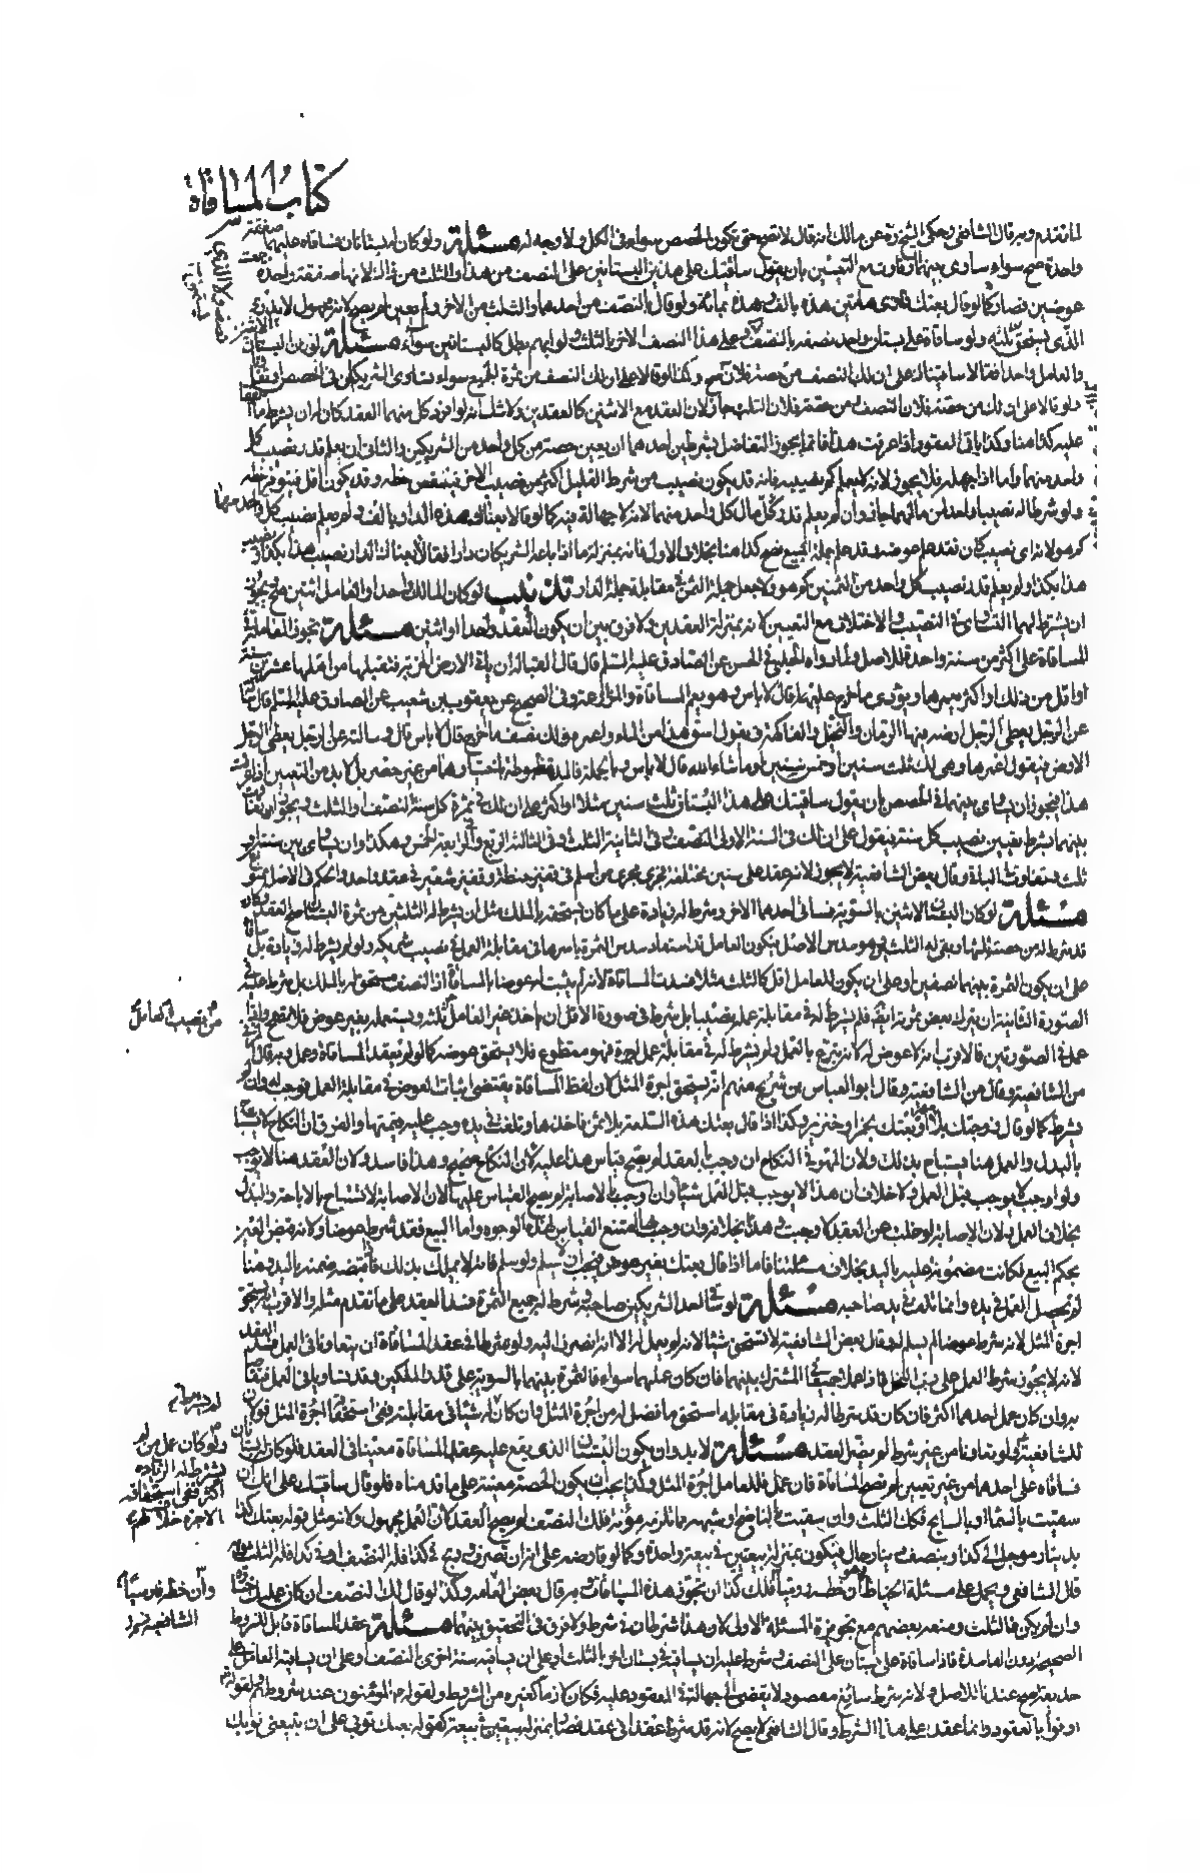 كتاب المساقاة
لما تقدم وبه قال الشافعي وحكى الشيخ ره عن مالك انه قال لا تصح حتى تكون الحصص سواء فى الكل ولا وجه له مسئلة ولو كان له بستانان فساقاه عليهما صفقة
واحدة صح سواء ساوى بينهما او فاوت مع التعيين بان يقول ساقيتك على هذين البستانين على النصف من هذا والثلث من ذاك لانها صفقة واحدة جمعت
عوضين فصار كما لو قال بعتك هذه بالف وهذه بمائة ولو قال بالنصف من احدهما والثلث من الاخر ولم يعين لم يصح لانه مجهول لا يدرى
الذى يستحق ثلثه ولو ساقاه على بستان واحد نصفه بالنصف وعلى هذا النصف الاخر بالثلث ولو ابهم بطل كالبستانين سواء مسئلة
والعامل واحدا فقالا ساقيناك على ان لك النصف من حصة فلان صح وكذا لو قالا على ان لك النصف من ثمرة الجميع سواء تساوى الشريكان فى الحصص او تفاوتا
ولو قالا على ان لك من حصة فلان النصف ومن حصة فلان الثلث جاز لان العقد مع الاثنين كالعقدين ولا شك انه لو افرد كل منهما العقد كان له ان يشرط ما
عليه كذا هنا وكذا باقى العقود اذا عرفت هذا فانما يجوز التفاضل بشرطين احدهما ان يعين حصته من كل واحد من الشريكين والثانى ان يعلم قدر نصيب كل
واحد منهما واما اذا جهله فلا يجوز لانه لا يعلم كم نصيبه فانه قد يكون نصيب من شرط القليل اكثر من نصيب الاخر فينقص حظه وقد يكون اقل فيتوفر حظه
ولو شرطا له نصيبا واحدا من مالهما جاز وان لم يعلم قدر مال كل واحد منهما لانه لا جهالة فيه كما لو قالا بعناك هذه الدار بالف ولم يعلم نصيب كل واحد منهما
كم هو لانه اى نصيب كان فقد علم عوضه وقد علم جملة المبيع فصح كذا هنا بخلاف الاول فانه بمنزلة ما اذا باعه الشريكان دارا فقالا بعناك الدار نصيب هذا بكذا ونصيب
هذا بكذا ولم يعلم قدر نصيب كل واحد من الثمنين كم هو ولا جعل جملة الثمن فى مقابلة جملة الدار تذنيب لو كان المالك واحدا والعامل اثنين صح ويجوز
ان يشرط لهما التساوى فى النصيب والاختلاف مع التعيين لانه بمنزلة العقدين ولا فرق بين ان يكون العقد واحدا او اثنين مسئلة تجوز المعاملة فى
المساقاة على اكثر من سنة واحدة للاصل ولما رواه الحلبى فى الحسن عن الصادق عليه السلم قال قال القبالة ان ياتى الارض الخربة فتقبلها من اهلها عشرين سنة
او اقل من ذلك او اكثر يعمرها ويؤدى ما خرج عليها قال لا باس وهو يعم المساقاة والمزارعة وفى الصحيح عن يعقوب بن شعيب عن الصادق عليه السلم قال سالته
عن الرجل يعطى الرجل ارضه فيها الرمان والنخل والفاكهة فيقول اسق هذا من الماء واعمره ولك نصف ما خرج قال لا باس قال وسالته عن الرجل يعطى الرجل
الارض فيقول اعمرها وهى لك ثلث سنين او خمس سنين او ما شاء الله قال لا باس وبالجملة فالمدة منوطة باختيارهما من غير حصر بل لا بد من التعيين اذا عرفت
هذا فيجوز ان يساوى بينهما فى الحصص بان يقول ساقيتك على هذا البستان ثلث سنين مثلا او اكثر على ان لك فى ثمرة كل سنة النصف او الثلث ويجوز ان يفاوت
بينهما بشرط تعيين نصيب كل سنة فيقول على ان لك فى السنة الاولى النصف وفى الثانية الثلث وفى الثالثة الربع وفى الرابعة الخمس وهكذا وان يساوى بين سنتين او
ثلث ويتفاوت الباقى وقال بعض الشافعية لا يجوز لانه عقد على سنين مختلفة فجرى مجرى من اسلم فى قفيز حنطة وقفيز شعير فى عقد واحد والحكم فى الاصل ممنوع
مسئلة لو كان البستان لاثنين بالسوية فساقى احدهما الاخر وشرط له زيادة على ما كان يستحقه بالملك مثل ان يشرط له الثلثين من ثمرة البستان صح العقد وكان
قد شرط له من حصته المساوية له الثلث وهو سدس الاصل فيكون العامل قد استفاد سدس الثمرة باسرها فى مقابلة العمل فى نصيب شريكه ولو لم يشرط له زيادة بل ساقاه
على ان يكون الثمرة بينهما نصفين او على ان يكون للعامل اقل كالثلث مثلا فسدت المساقاة لانه لم يثبت له عوضا بالمساقاة اذ النصف مستحق له بالملك بل شرط عليه فى
الصورة الثانية ان يترك بعض ثمرته ايضا فلم يشرط له فى مقابلة عمله نصيبا بل شرط فى صورة الاقل ان ياخذ غير العامل ثلثه ويستعمله بغير عوض فلا يصح ولو
من نصيب العامل
عمل فى الصورتين فالاقرب انه لا عوض له لانه متبرع بالعمل ولم يشرط له فى مقابلة عمله اجرة فهو متطوع فلا يستحق عوضه كما لو لم يعقد المساقاة وعمل وبه قال
من الشافعية وقال ابو العباس بن شريح منهم انه يستحق اجرة المثل لان لفظ المساقاة يقتضى اثبات العوض فى مقابلة العمل فوجب له وان لم
يشرط كما لو قال زوجتك بلا مهر او بعتك بخمر او خنزير وكذا اذا قال بعتك هذه السلعة بلا ثمن فاخذها وتلفت فى يده وجب عليه قيمتها والفرق ان النكاح لا يستباح
بالبذل والعمل هنا يستباح بذلك ولان المهر فى النكاح ان وجب بالعقد لم يصح قياس هذا عليه لان النكاح صحيح وهذا فاسد ولان العقد هنا لا يوجب
ولو اوجب لاوجب قبل العمل ولا خلاف ان هذا لا يوجب قبل العمل شيئا وان وجب بالاصابة لم يصح القياس عليها لان الاصابة لا تستباح بالاباحة والبذل
بخلاف العمل ولان الاصابة لو خلت عن العقد لاوجبت وهذا بخلافه وان وجب بهما امتنع القياس لهذه الوجوه واما البيع فقد شرط عوضا ولانه قبض العين
بحكم البيع فكانت مضمونة عليه باليد بخلاف مسئلتنا فاما اذا قال بعتك بغير عوض فيجب ان يسلم ولو سلم فانه لا يملك بذلك فاذا قبضه ضمنه باليد وهنا
لم تحصل العمل فى يده وانما تلف فى يد صاحبه مسئلة لو ساقى احد الشريكين صاحبه وشرط له جميع الثمرة فسد العقد على ما تقدم مثله والاقرب انه يستحق
اجرة المثل لانه شرط عوضا لم يسلم له وقال بعض الشافعية لا يستحق شيئا لانه لم يعمل له الا انه انصرف اليه ولو شرطا فى عقد المساقاة ان يتعاونا فى العمل فسد العقد
لانه لا يجوز شرط العمل على رب النخل فاذا عمل جميعا فى المشترك بينهما فان كان عملهما سواء فالثمرة بينهما بالسوية على قدر الملكين وقد تساويا فى العمل فتقاصا
به وان كان عمل احدهما اكثر فان كان قد شرط له زيادة فى مقابلته استحق ما فضل له من اجرة المثل وان كان لم يشترط شيئا فى مقابلته ففى استحقاق اجرة المثل قولان
ولو كان عمل من لم
يشرط له الزيادة
اكثر ففى استحقاقه
الاجرة خلاف
للشافعية ولو تعاونا من غير شرط لم يضر العقد مسئلة لا بد وان يكون البستان الذى يقع عليه عقد المساقاة معينا فى العقد فلو كان له بستانان
فساقاه على احدهما من غير تعيين لم تصح المساقاة فان عمل فللعامل اجرة المثل وكذا يجب ان يكون الحصة معينة على ما قدمناه فلو قال ساقيتك على انك ان
سقيت بالسماء او بالسايح فلك الثلث وان سقيت بالناضح او شبهه مما تلزمه مؤنة فلك النصف لم يصح العقد لان العمل مجهول ولانه مثل قوله بعتك كذا
بدينار موجل الى كذا وبنصف دينار حال فيكون بمنزلة بيعتين فى بيعة واحدة وكما لو قارضه على انه ان تصرف وربح فى كذا فله النصف او فى كذا فله الثلث وبه
قال الشافعى ويحمل على مسئلة الخياط ان خطه روميا فلك كذا ان تجوز هذه المساقاة وبه قال بعض العامة وكذا لو قال لك النصف ان كان عليك خسارة
وان خطه فارسيا
وان لم يكن فالثلث ومنعه بعضهم مع تجويزه المسئلة الاولى لان هذا شرطان فى شرط ولا فرق فى التحقيق بينهما مسئلة عقد المساقاة قابل للشروط
الصحيحة دون الفاسدة فاذا ساقاه على بستان على النصف وشرط عليه ان يساقيه فى بستان اخر بالثلث او على ان يساقيه سنة اخرى بالنصف او على ان يساقيه العامل على
حديقته صح عندنا للاصل ولانه شرط سايغ مقصود لا يقضى الى جهالة فى العقود عليه فكان لازما كغيره من الشرايط ولقوله المؤمنون عند شروطهم ولقوله تع
اوفوا بالعقود وانما عقد على هذا الشرط وقال الشافعى لا يصح لانه قد شرط عقدا فى عقد فصار بمنزلة بيعتين فى بيعة كقوله بعتك ثوبى على ان تبيعنى ثوبك